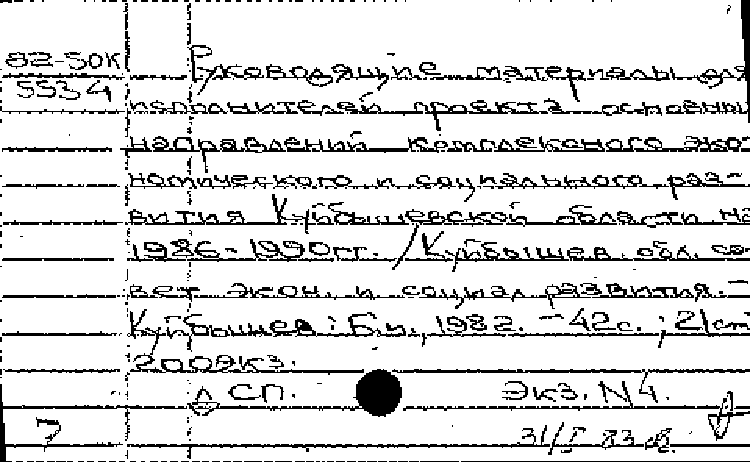 82-50К
5534
Руководящие материалы для
исполнителей проекта основных
направлений комплексного эко-
номического и социального раз-
вития Куйбышевской области на
1986-1990гг. /Куйбышев. обл. со-
вет экон. и социал развития.-
Куйбышев: Б.и., 1982. -42с.; 21см
200экз.
СП. Экз. N4.
7 31/I 83